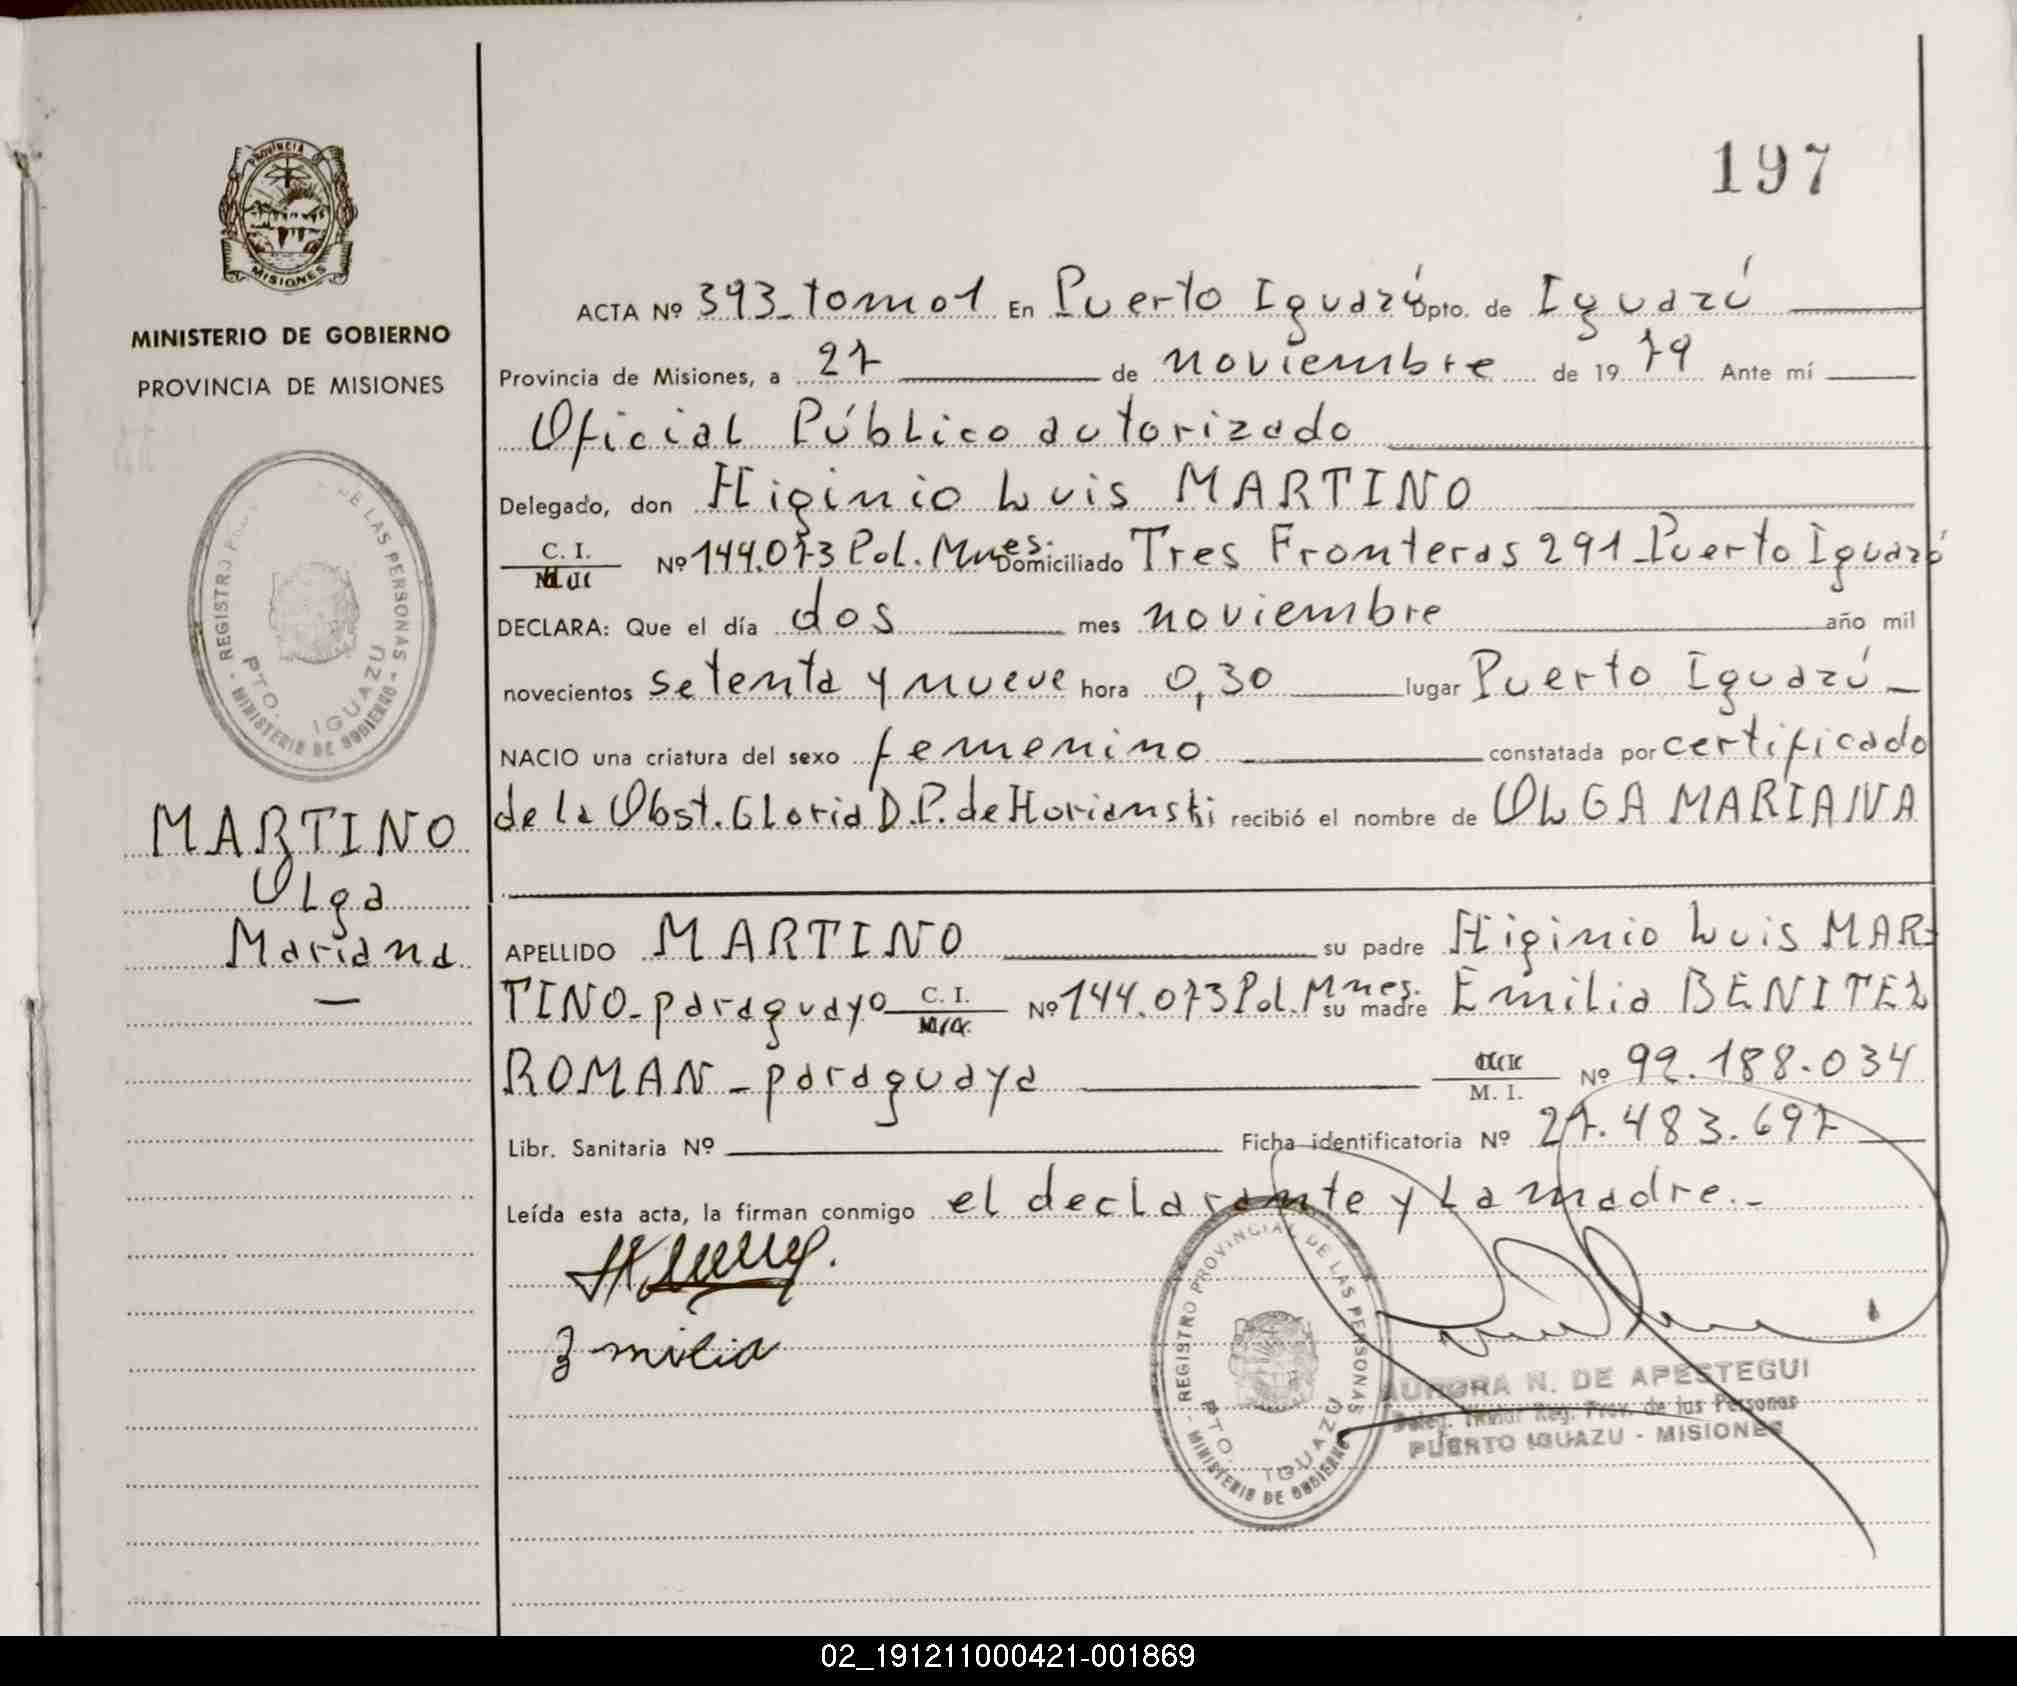 197
PROVINCIA DE
MISIONES
MINISTERIO DE GOBIERNO
PROVINCIA DE MISIONES
REGISTRO DE LAS PERSONAS
PTO. IGUAZU
- MINISTERIO DE GOBIERNO -
MARTINO
Olga
Mariana
—
ACTA Nº 393_tomo1 En Puerto Iguazú Dpto. de Iguazú
Provincia de Misiones, a 27 de noviembre de 1979 Ante mí
Oficial Público autorizado
Delegado, don Higinio Luis MARTINO
C. I. Nº 144.073 Pol. Mnes. Domiciliado Tres Fronteras 291_Puerto Iguazú
DECLARA: Que el día dos mes noviembre año mil
novecientos setenta y nueve hora 0,30 lugar Puerto Iguazú_
NACIO una criatura del sexo femenino constatada por certificado
de la Obst. Gloria D.P. de Horianski recibió el nombre de OLGA MARIANA
APELLIDO MARTINO su padre Higinio Luis MAR-
TINO_paraguayo C. I. Nº 144.073 Pol. Mnes. su madre Emilia BENITEZ
ROMAN_paraguaya M. I. Nº 92.188.034
Libr. Sanitaria Nº Ficha identificatoria Nº 27.483.697
Leída esta acta, la firman conmigo el declarante y la madre._
Emilia
REGISTRO PROVINCIAL DE LAS PERSONAS
PTO. IGUAZU
- MINISTERIO DE GOBIERNO
AURORA N. DE APESTEGUI
Deleg. Titular Reg. Prov. de las Personas
PUERTO IGUAZU - MISIONES
02_191211000421-001869